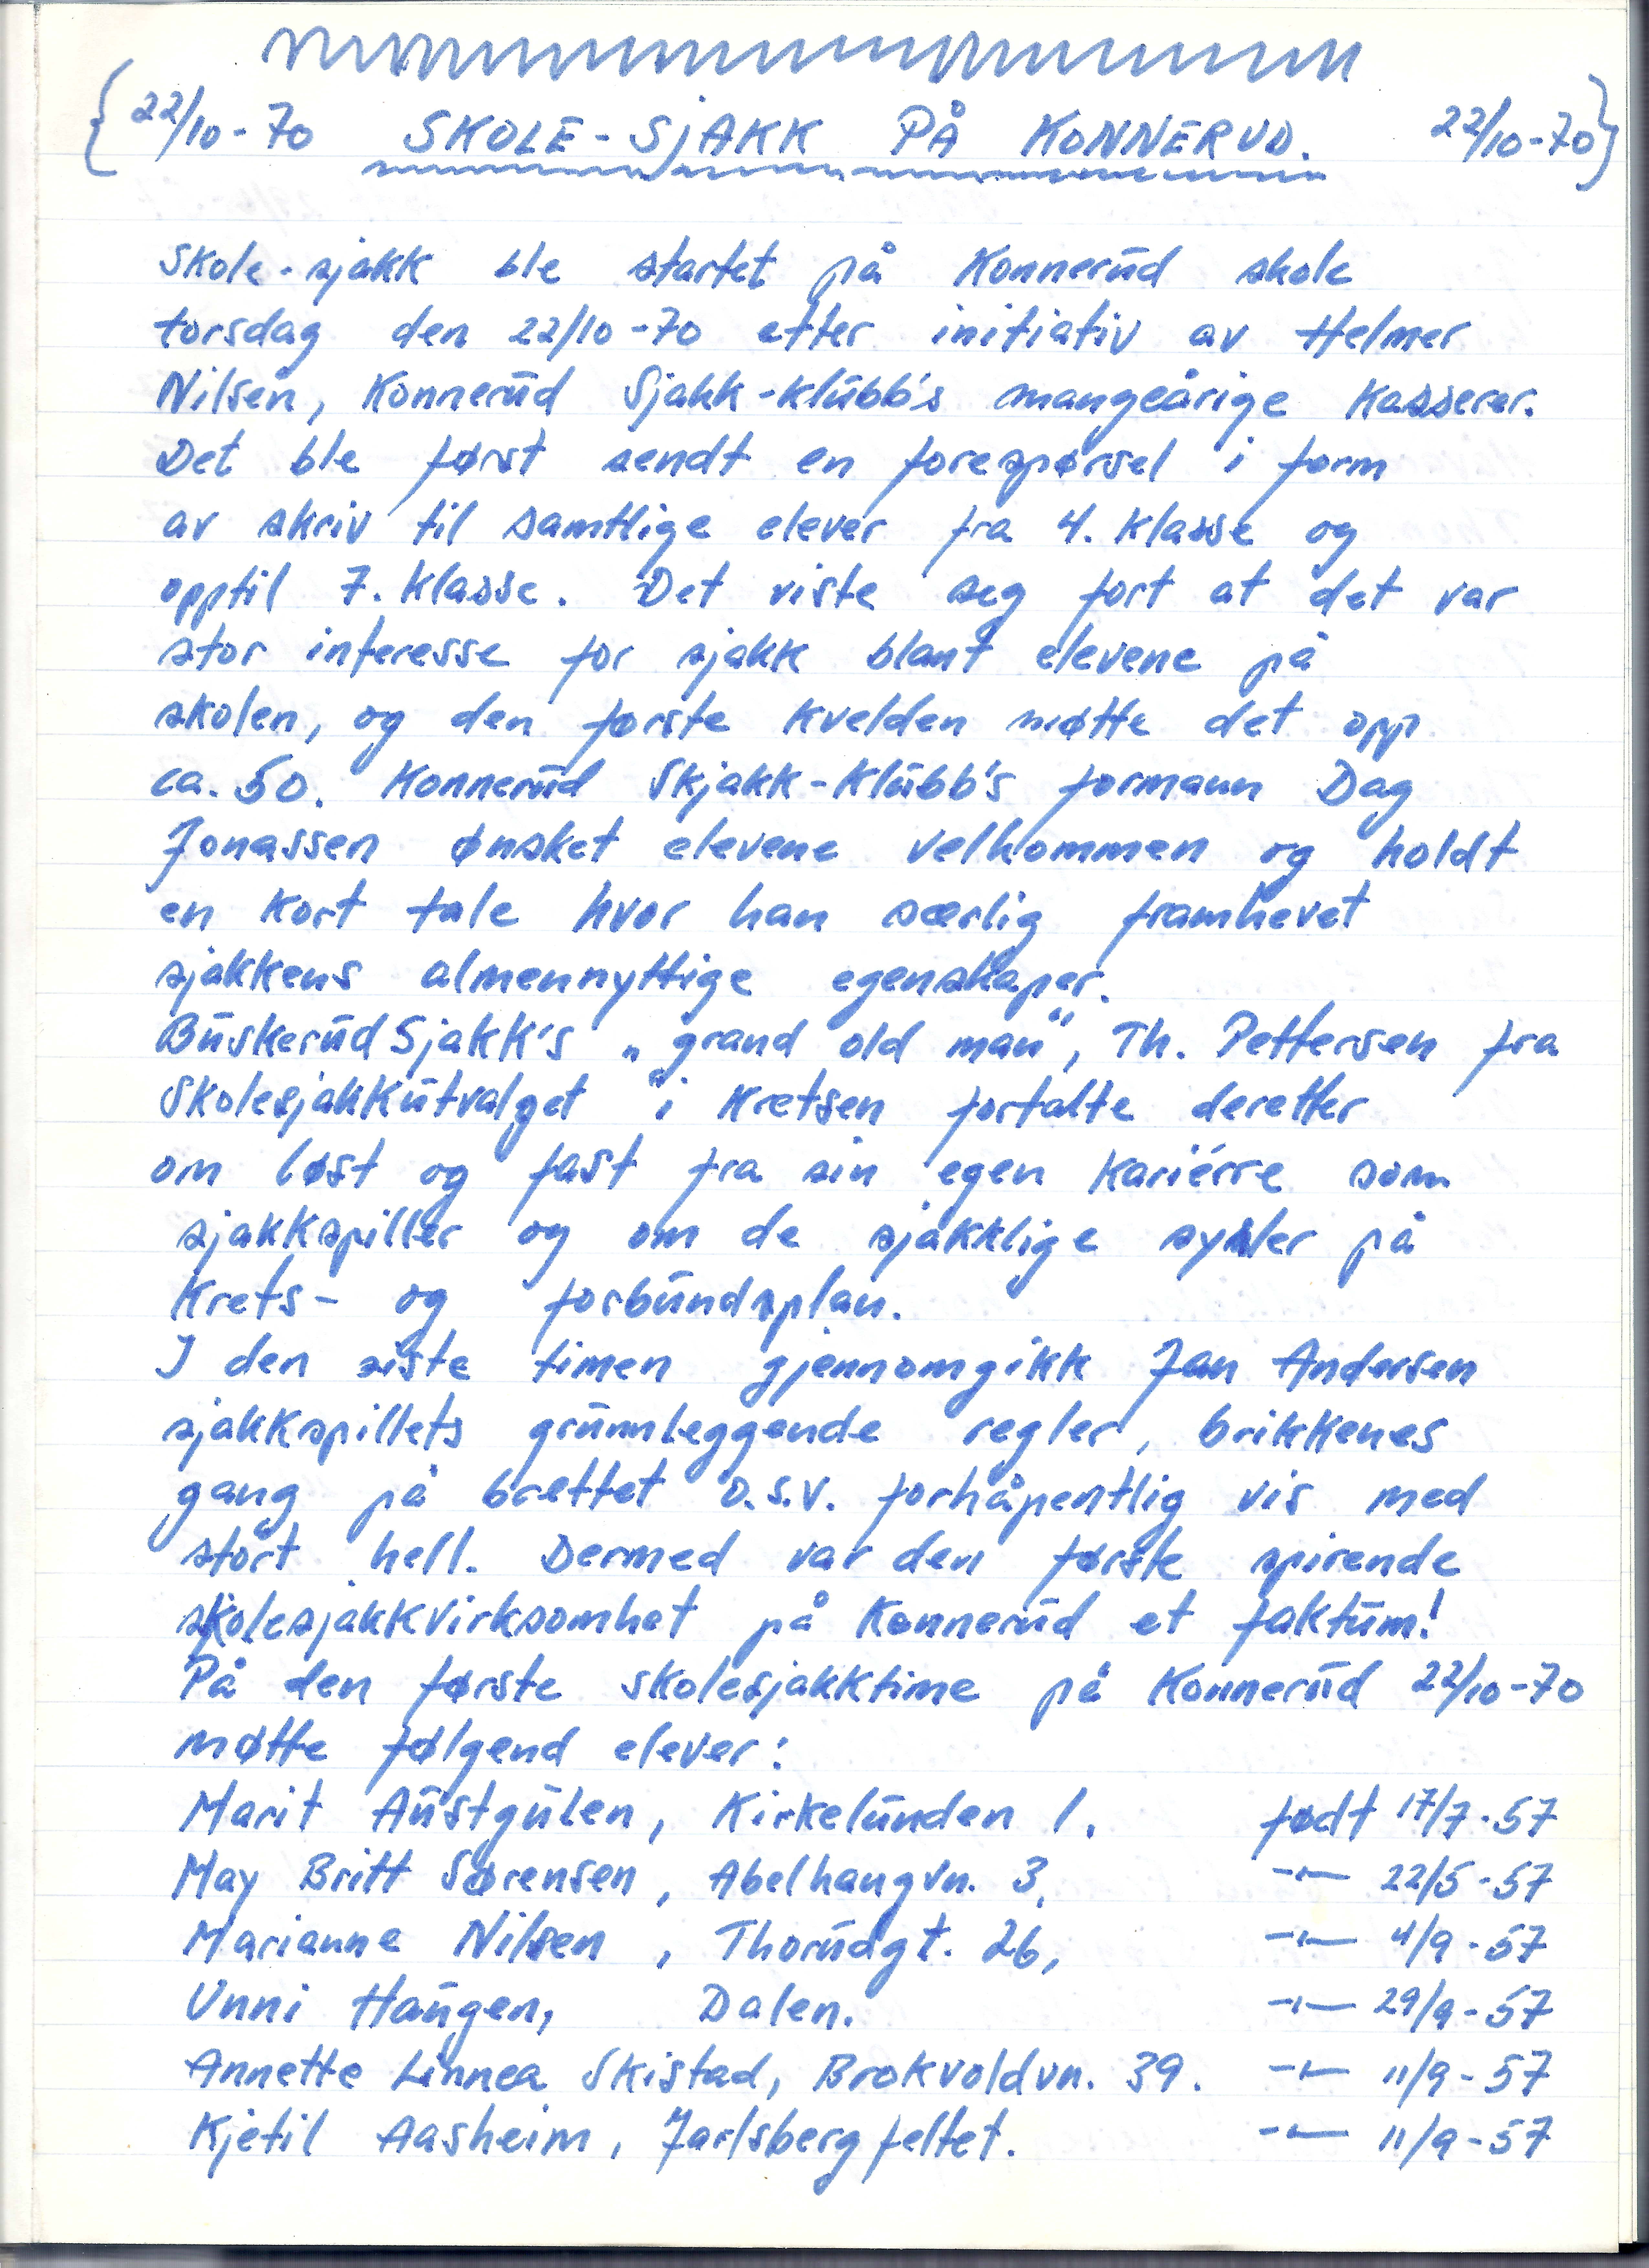 22/10-70 SKOLE-SJAKK PÅ KONNERUD. 22/10-70
Skole-sjakk ble startet på Konnerud skole
torsdag den 22/10-70 etter initiativ av Helmer
Nilsen, Konnerud Sjakk-klubb's mangeårige Kasserer.
Det ble først sendt en forespørsel i form
av skriv til samtlige elever fra 4. klasse og
opptil 7. klasse. Det viste seg fort at det var
stor interesse for sjakk blant elevene på
skolen, og den første kvelden møtte det opp
ca. 50. Konnerud Skjakk-Klubb's formann Dag
Jonassen ønsket elevene velkommen og holdt
en kort tale hvor han særlig framhevet
sjakkens almennyttige egenskaper.
Buskerud Sjakk's „grand old man", Th. Pettersen fra
Skolesjakkutvalget i Kretsen fortalte deretter
om løst og fast fra sin egen kariérre som
sjakkspiller og om de sjakklige sysler på
Krets- og forbundsplan.
I den siste timen gjennomgikk Jan Andersen
sjakkspillets grunnleggende regler, brikkenes
gang på brettet o.s.v. forhåpentlig vis med
stort hell. Dermed var den første spirende
skolesjakkvirksomhet på Konnerud et faktum!
På den første skolesjakktime på Konnerud 22/10-70
møtte følgend elever:
Marit Austgulen, Kirkelunden 1. født 17/7-57
May Britt Sørensen, Abelhaugvn. 3, -"- 22/5-57
Marianne Nilsen, Thorudgt. 26, -"- 4/9-57
Unni Haugen, Dalen. -"- 29/9-57
Annette Linnea Skistad, Brokvoldvn. 39. -"- 11/9-57
Kjetil Aasheim, Jarlsbergfeltet. -"- 11/9-57